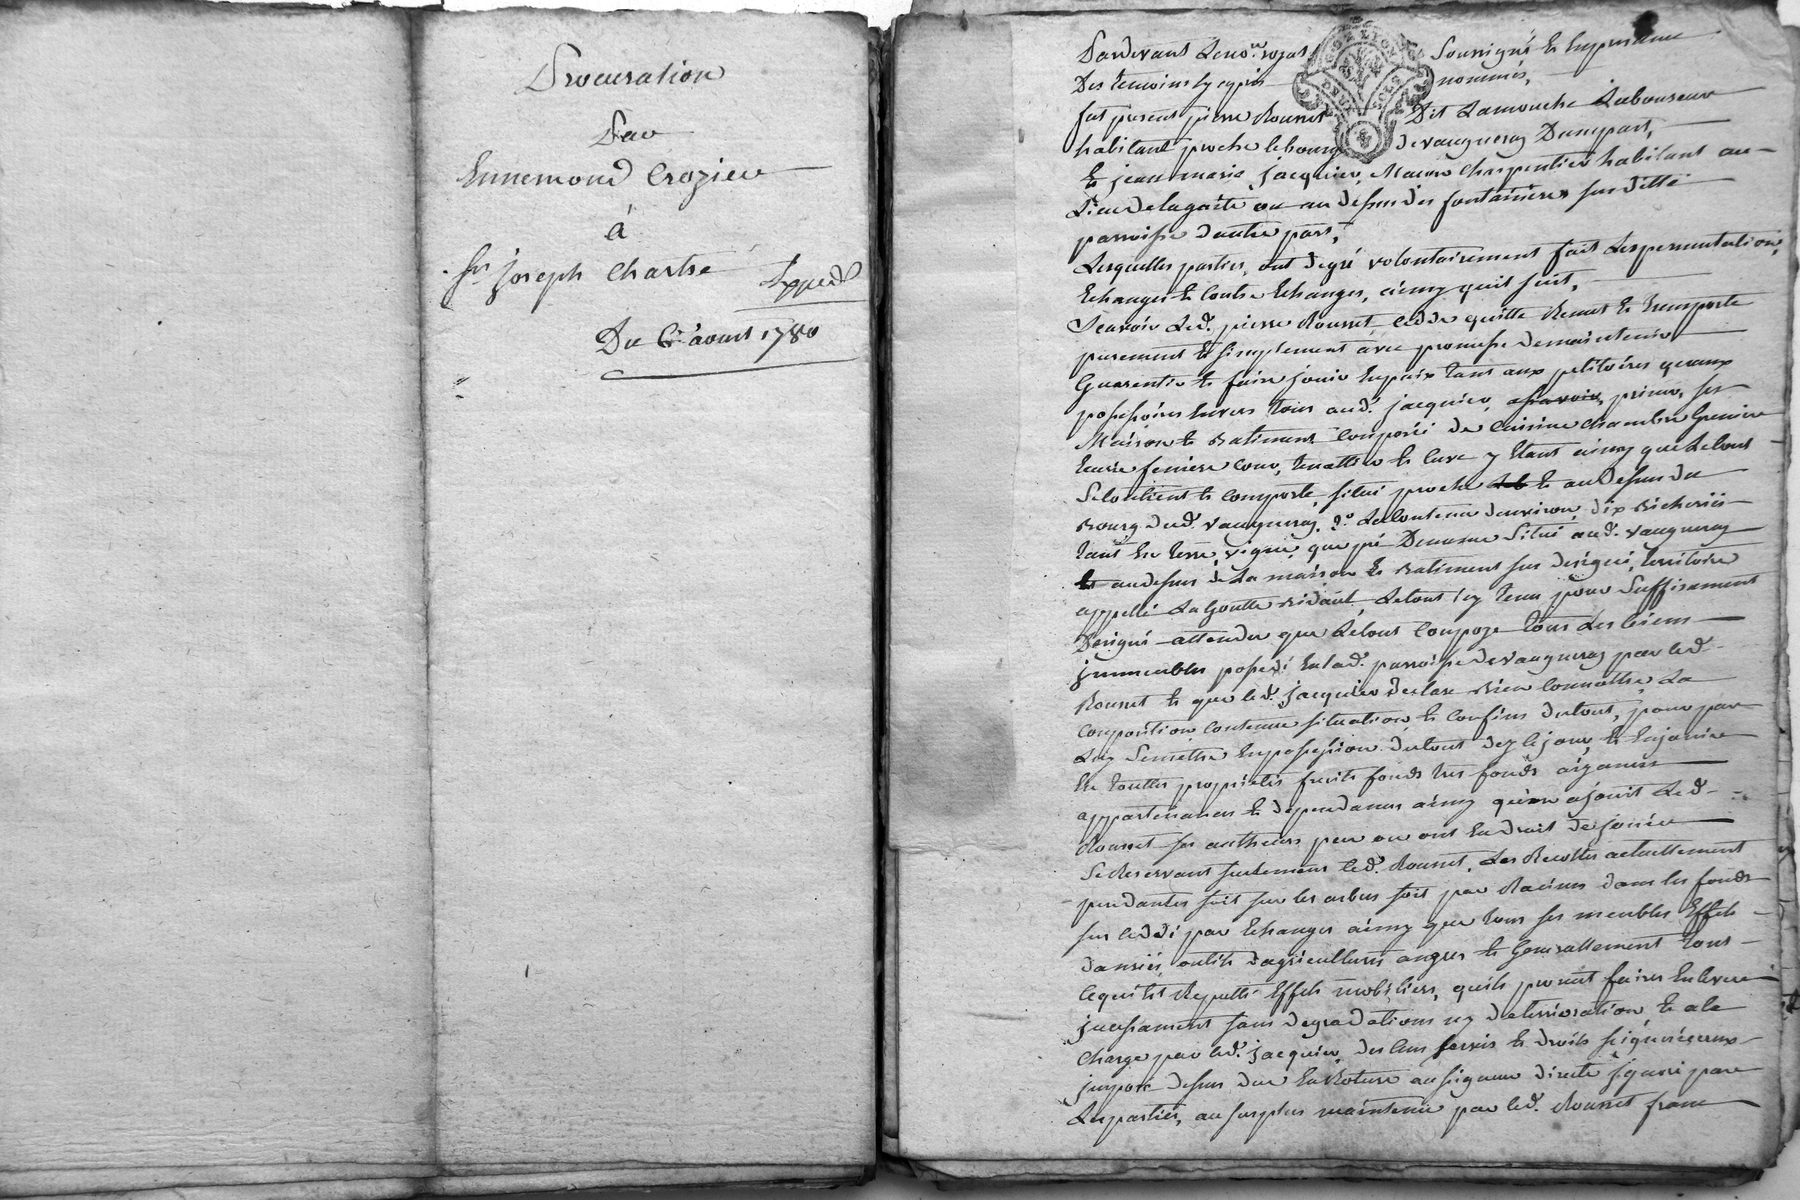 Procuration
Par
Ennemond Crozier
à
Sr. joseph Chartre
Expedé
Du 6 aoust 1780
Pardevant Le nore. royal Soussigné Et En presence
Des temoins Cy après nommés,
fut present pierre Rousset Dit Lamouche Laboureur
habitant proche le bourg de vaugneray Dune part,
Et jean marie jacquier, Maitre Charpentier habitant au
Lieu de la gaite ou au dessus des fontainieres sus ditte
parroisse D'autre part,
Lesquelles parties, ont de gré volontairement fait Les permutation,
Echanges Et Contre Echanges, ainsy quil suit,
Scavoir Led. pierre Rousset cedde quitte Remet Et transporte
purement Et simplement avec promesse de maintenir
Guarentir Et faire jouir En paix tant aux petitoires quaux
possessoires Envers tous aud. jacquier, primo, ses
Maison Et Batiment Composés de Cuisine chambre Grenier
Ecurie feniere cour, Et Cuve y Etant ainsy que Le tout
Se Contient Et comporte, situé proche Et au dessus du
Bourg dud. vaugneray, 2o. Le Contenu denviron dix Bicherées
tant En terre, vigne, que pré Situé aud. vaugneray
au dessus de La maison Et Batiment sus designé, territoire
appellé La Goutte Le tout icy tenu pour Suffisament
Designé attendu que Le tout Compoze tous Les biens
jmmeubles possedé En lad. parroisse de vaugneray par led.
Rousset Et que led. jacquier Declare Bien Connoitre, La
Composition contenue situation, Et Confins du tout, pour par
Luy Semettre En possession du tout dez ce jour, Et En jouir
En touttes proprietés fruits fonds tres fonds aizances
appartenances Et dependances ainsy qu'en a jouit Led.
Rousset ses autheurs peu ou ont Eu droit de jouir
Se Reservant seulement led. Rousset, Les Recoltes actuellement
pendantes soit sur les arbres soit par Racines dans les fonds
sus ceddé par Echanges ainsy que tous ses meubles Effets
Danrées, outils d'agricultures Et Generallement tous
ce qui Est Reputté Effets mobiliers, quils pourront faire Enlever
jncessament sans degradations ny deterrioration, Et a la
Charge par led. jacquier, des Cens servis Et droits seigneuriaux
jmposé dessus due En Roture au seigneur directe jgnoré par
Les parties, au surplus maintenir par led. Rousset franc